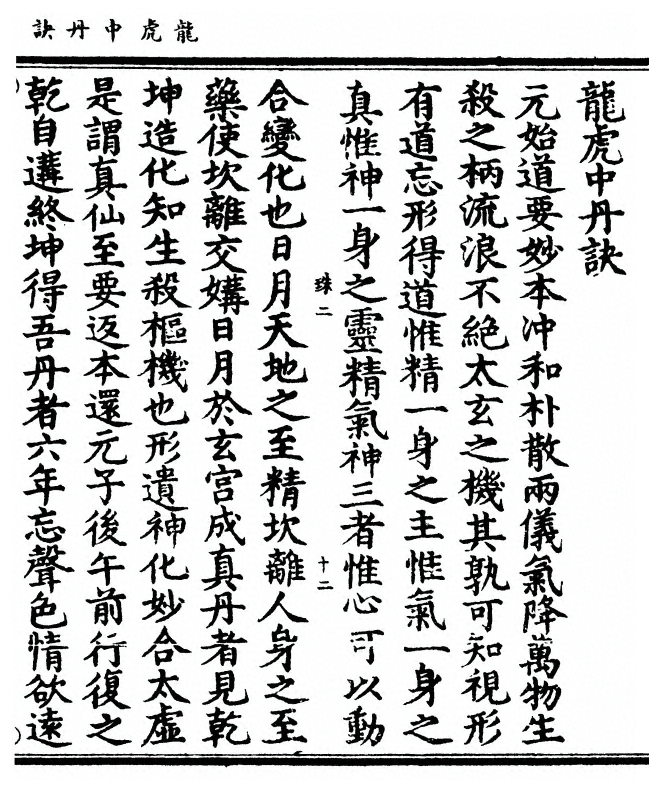 龍虎中丹訣
龍虎中丹訣
元始道要妙本冲和朴散兩儀氣降萬物生
殺之柄流浪不絕太玄之機其孰可知視形
有道忘形得道惟精一身之主惟氣一身之
真惟神一身之靈精氣神三者惟心可以動
珠二
十二
合變化也日月天地之至精坎離人身之至
藥使坎離交媾日月於玄宮成真丹者見乾
坤造化知生殺樞機也形遺神化妙合太虛
是謂真仙至要返本還元子後午前行復之
乾自遘終坤得吾丹者六年忘聲色情欲遠